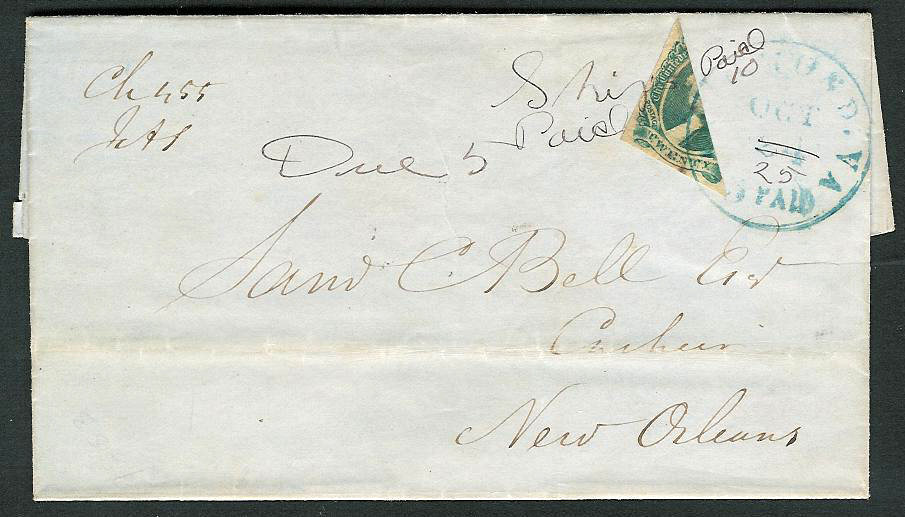 Ch 455
Ship
Paid
Due 5
Paid
10
TWENTY
OCT
25
PAID
VA
Saml C Bell Esq
Cashier
New Orleans